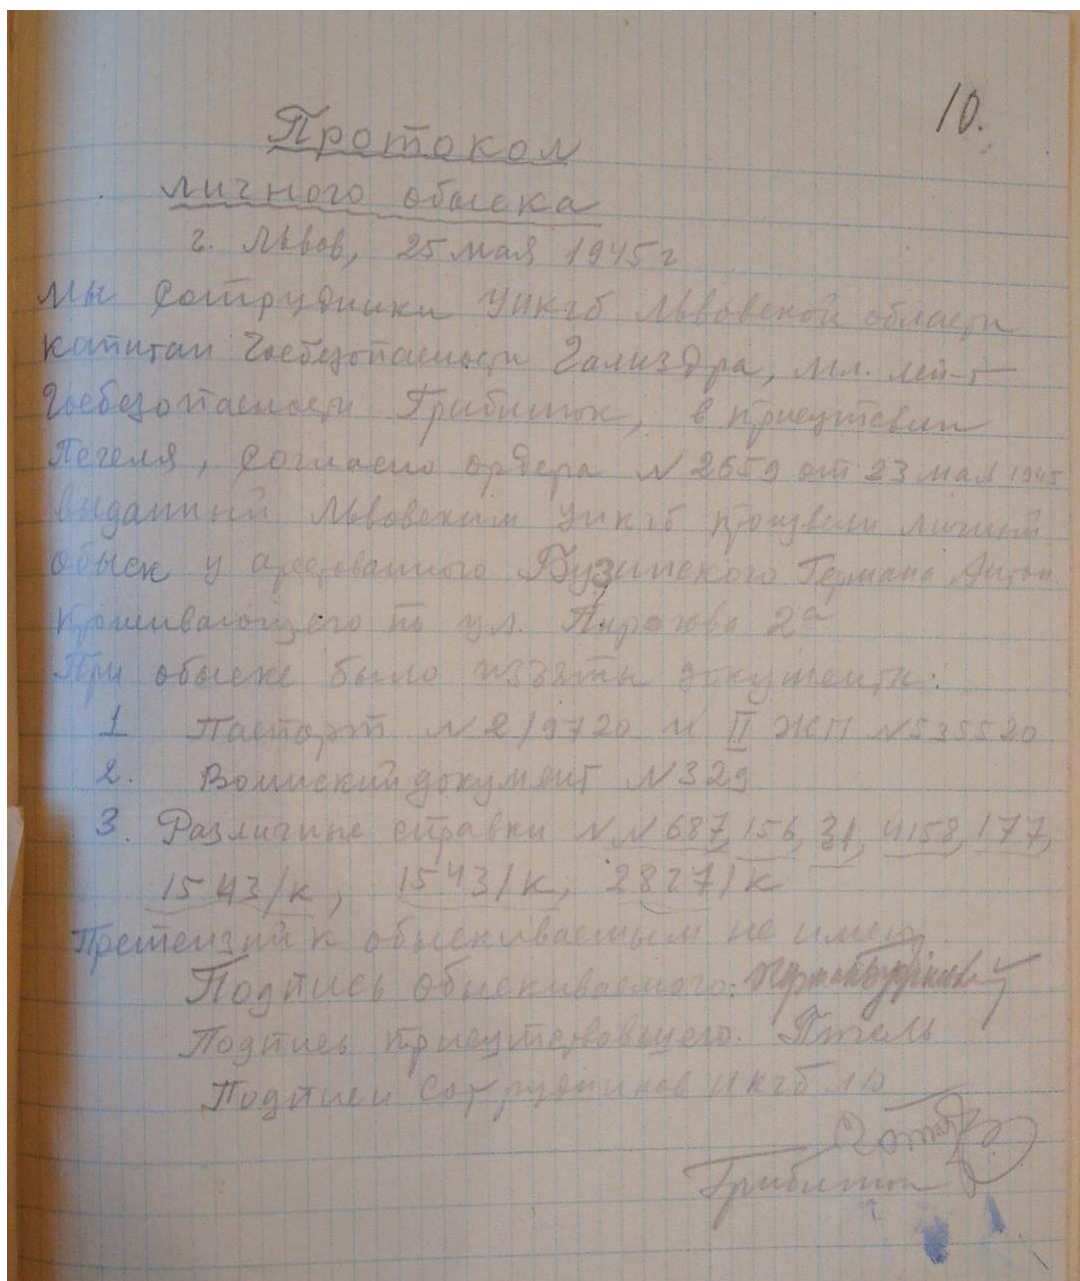 10.
Протокол
личного обыска
г. Львов, 25 мая 1945 г
Мы сотрудники УНКГБ Львовской области
капитан Госбезопасности, мл. лей-т
Госбезопасности Грибинюк, в присутствии
согласно ордера N 2659 от 23 мая 1945
выданный Львовским УНКГБ произвели личный
обыск у арестованного Бузинского Германа Антон
проживающего по ул. Пирогова 2а
При обыске было изъяты документы:
1 Паспорт N 219720 и II ЖП N 535520
2. Воинский документ N 329
3. Различные справки N N 687, 156, 31, 4158, 177,
1543/к, 1543/к, 2827/к
Претензий к обыскиваемым не имею
Подпись обыскиваемого:
Подпись присутствовавшего.
Подписи сотрудников НКГБ ЛО